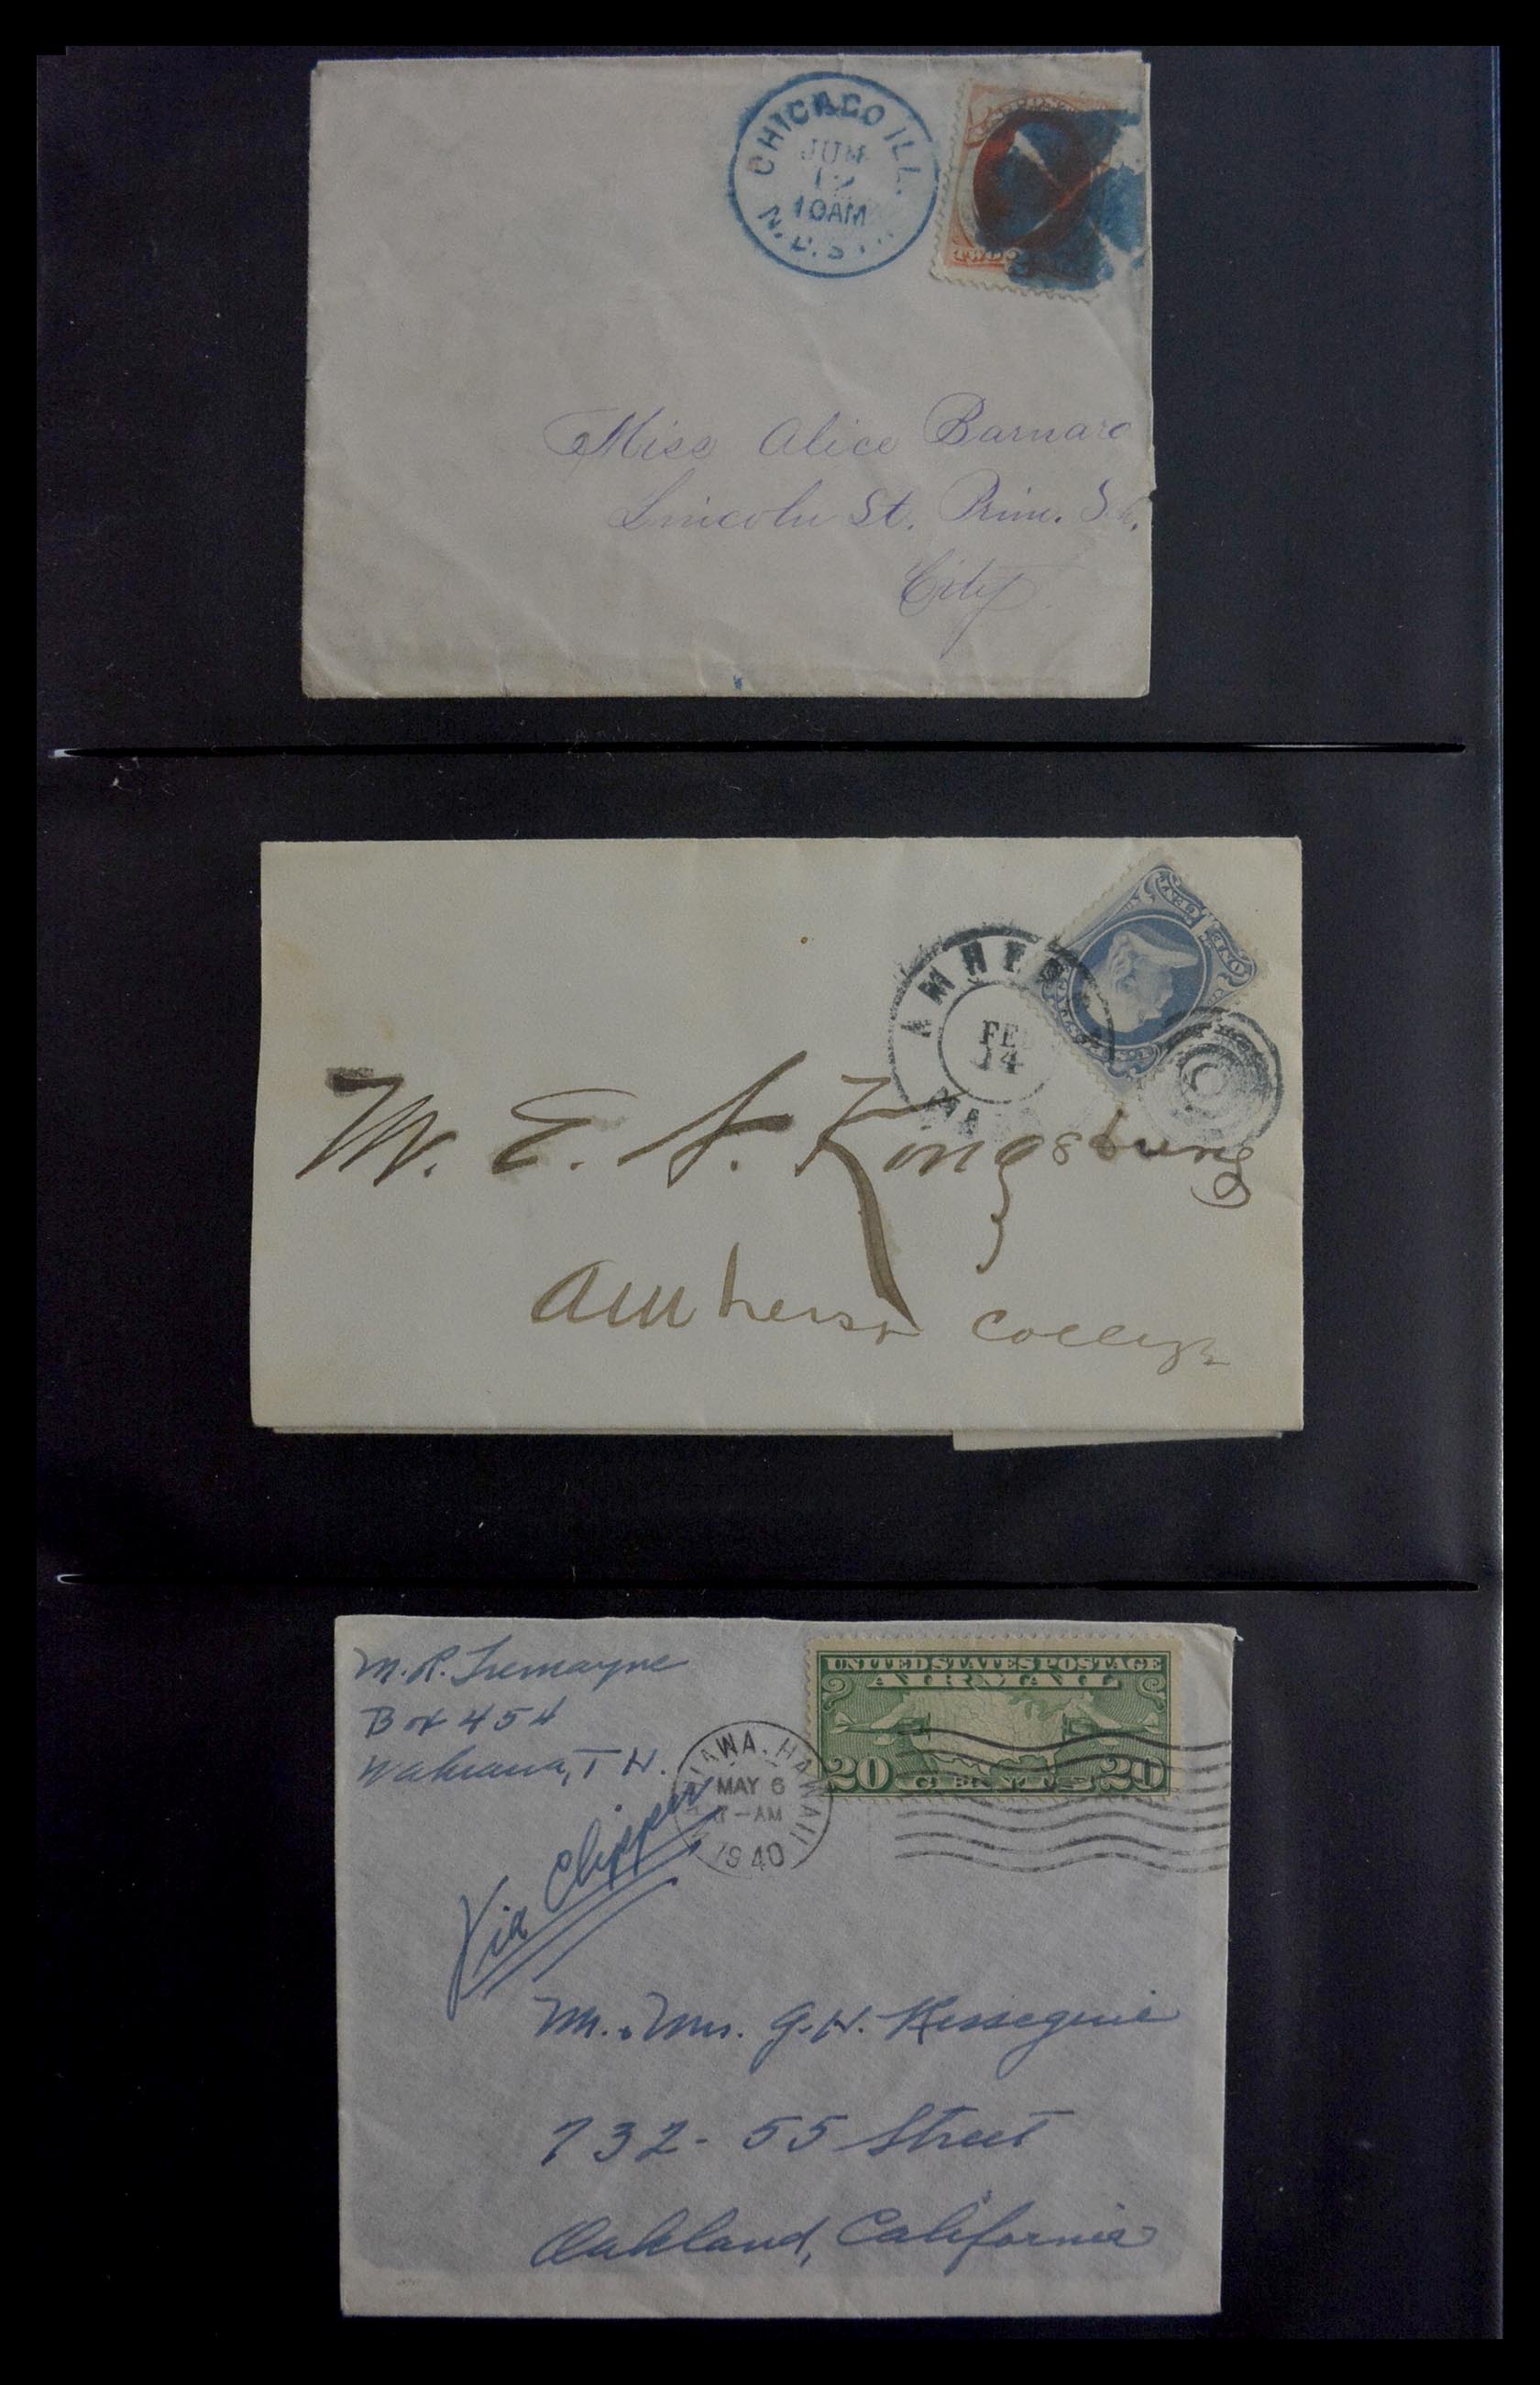 CHICAGO ILL.
JUN
10AM
TWO
Miss Alice Barnard
Lincoln St. Prim. Sch.
City
AMHERS
FEB
14
MASS
ONE
M. E. S. Kingsbury
Amherst College
M. R. Tremayne
Box 454
Wahiawa, T H.
UNITED STATES POSTAGE
AIR MAIL
20 CENTS 20
WAHIAWA, HAWAII
MAY 6
7-AM
1940
Via Clipper
Mr. & Mrs. G. H. Kesseguie
732 - 55 Street
Oakland, California